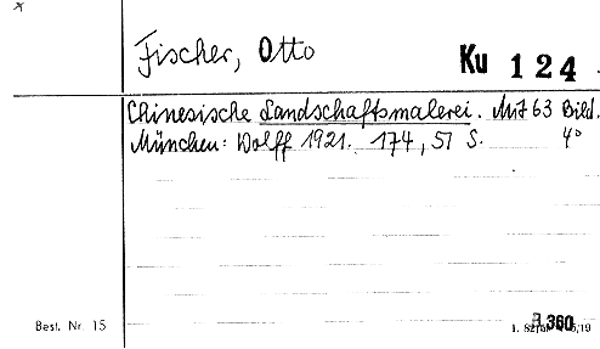 Fischer, Otto
Ku 124
Chinesische Landschaftsmalerei. Mit 63 Bild.
München: Wolff 1921. 174, 51 S. 4°
Best. Nr. 15
360